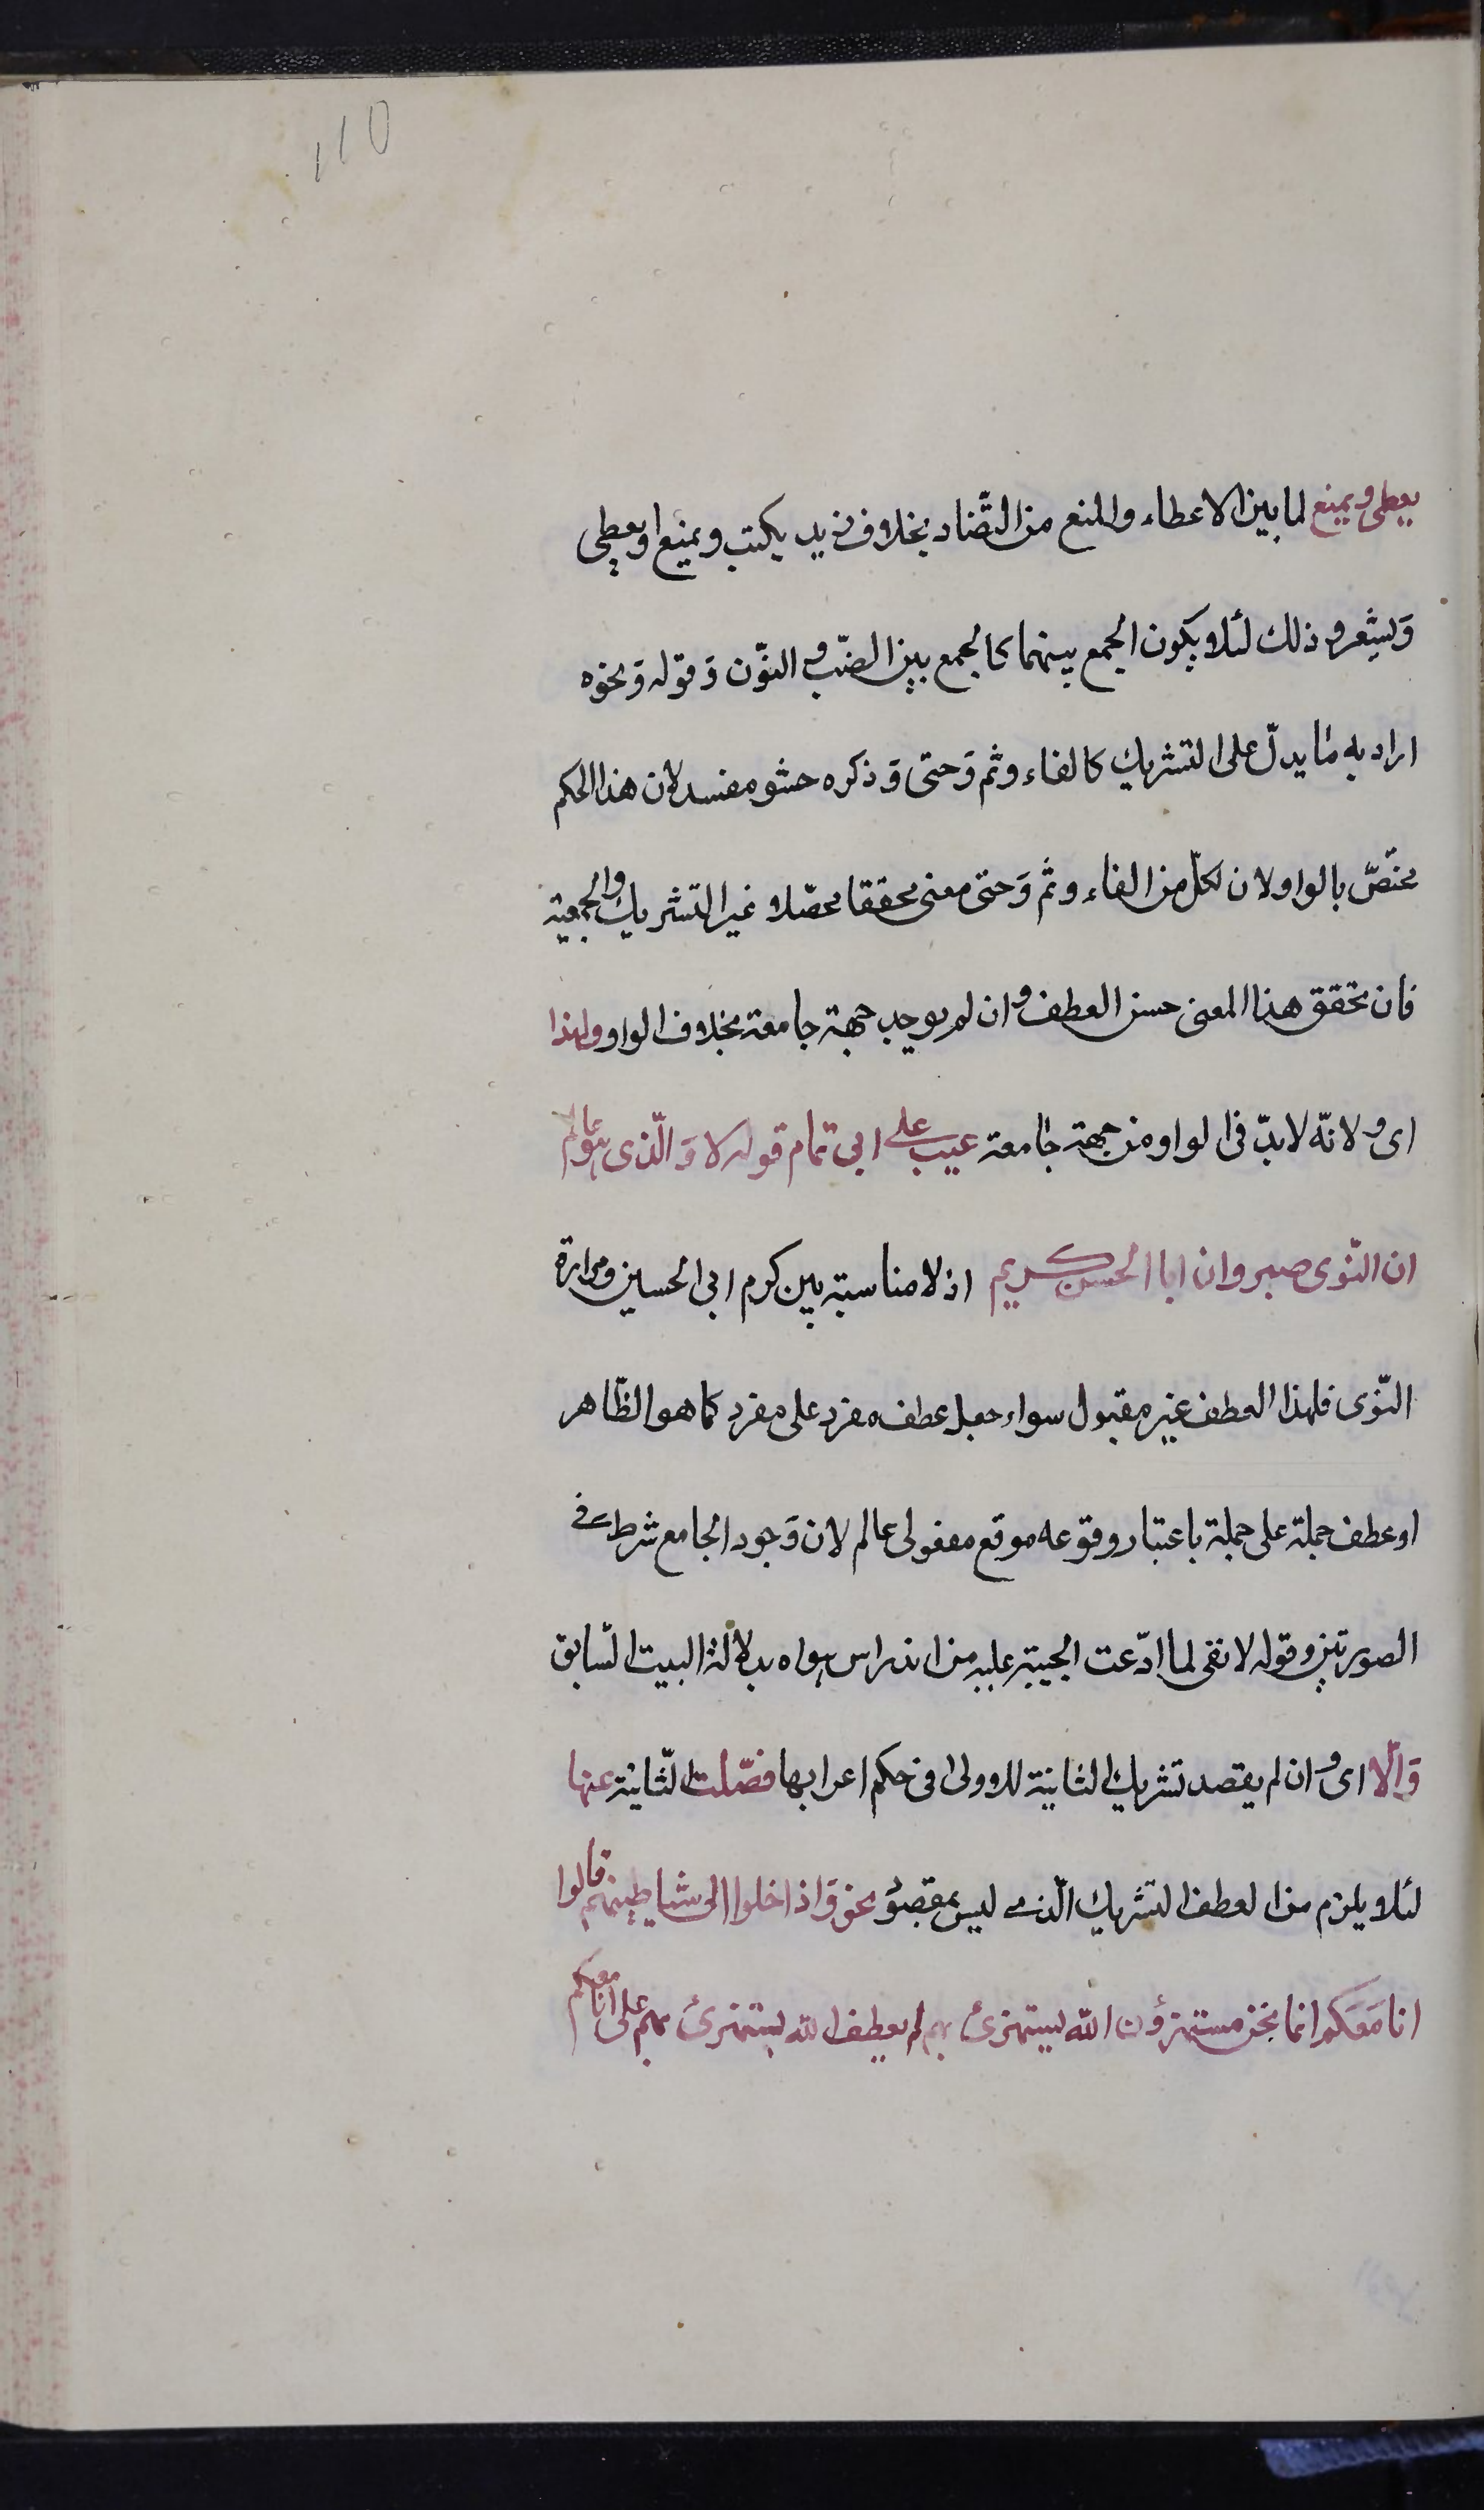 110
يعطى ويمنع لما بين الاعطاء والمنع من التّضاد بخلاف زيد يكتب ويمنع او يعطى
وَيشعر وذلك لئلا يكون الجمع بينهما كالجمع بين الضّب والنّون وَقوله وَنحوه
اراد به ما يدلّ على التشريك كالفاء وثم وَحتى وَذكره حشو مفسد لان هذا الحكم
مختصّ بالواو لان لكلّ من الفاء وثم وَحتى معنى محققا محصّلا غير التشريك والجمعية
فان تحقق هذا المعنى حسن العطف وان لم يوجد جهة جامعة بخلاف الواو ولهذا
اى ولانّه لا بدّ فى الواو من جهة جامعة عيب على ابى تمام قوله لا وَالّذى هو عالم
ان النّوى صبر وان ابا الحسين كريم اذ لا مناسبة بين كرم ابى الحسين ومرارة
النّوى فلهذا العطف غير مقبول سواء جعل عطف مفرد على مفرد كما هو الظّاهر
او عطف جملة على جملة باعتبار وقوعه موقع مفعولى عالم لان وَجود الجامع شرط فى
الصورتين وقوله لا نفى لما ادّعت الحبيبة عليه من اندراس هواه بدلالة البيت السّابق
وَالّا اى وان لم يقصد تشريك الثانية للاولى فى حكم اعرابها فصّلت الثّانية عنها
لئلا يلزم من العطف التشريك الّذى ليس بمقصود نحو وَاذا خلوا الى شياطينهم قالوا
انا مَعَكم انما نحن مستهزؤن اللّه يستهزئ بهم لم يعطف اللّه يستهزئ بهم على انا معكم